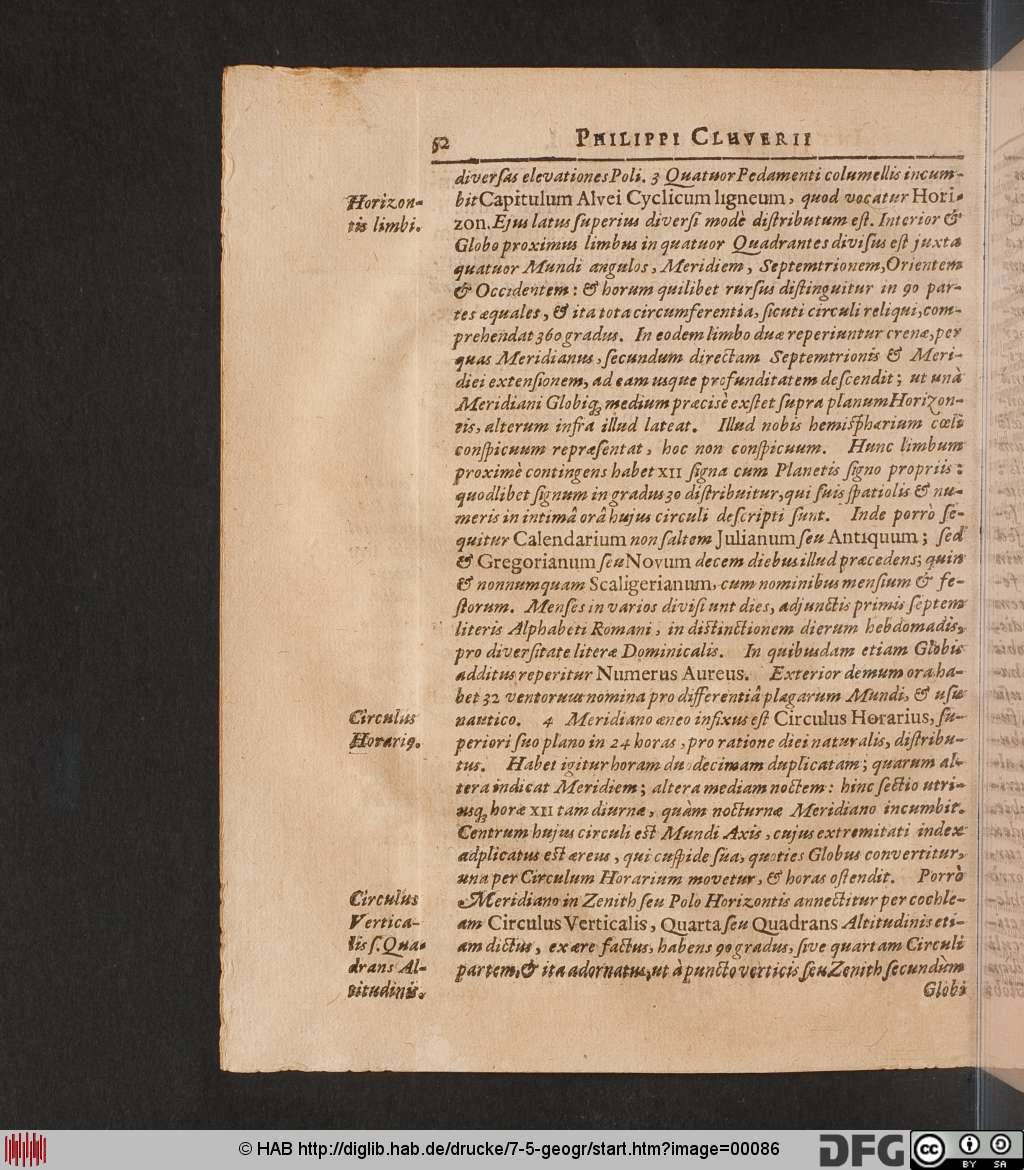 52
PHILIPPI CLUVERII
diversas elevationes Poli. 3 Quatuor Pedamenti columellis incum-
bit Capitulum Alvei Cyclicum ligneum, quod vocatur Hori-
zon. Ejus latus superius diversi modè distributum est. Interior &
Globo proximus limbus in quatuor Quadrantes divisus est juxta
quatuor Mundi angulos, Meridiem, Septemtrionem, Orientem
& Occidentem: & horum quilibet rursus distinguitur in 90 par-
tes æquales, & ita tota circumferentia, sicuti circuli reliqui, com-
prehendat 360 gradus. In eodem limbo duæ reperiuntur crenæ, per
quas Meridianus, secundum directam Septemtrionis & Meri-
diei extensionem, ad eam usque profunditatem descendit; ut unà
Meridiani Globiq; medium præcisè exstet supra planum Horizon-
tis, alterum infra illud lateat. Illud nobis hemisphærium cœli
conspicuum repræsentat, hoc non conspicuum. Hunc limbum
proximè contingens habet XII signa cum Planetis signo propriis:
quodlibet signum in gradus 30 distribuitur, qui suis spatiolis & nu-
meris in intimâ orâ hujus circuli descripti sunt. Inde porrò se-
quitur Calendarium non saltem Julianum seu Antiquum; sed
& Gregorianum seu Novum decem diebus illud præcedens; quin
& nonnumquam Scaligerianum, cum nominibus mensium & fe-
storum. Menses in varios divisi unt dies, adjunctis primis septem
literis Alphabeti Romani, in distinctionem dierum hebdomadis,
pro diversitate literæ Dominicalis. In quibusdam etiam Globis
additus reperitur Numerus Aureus. Exterior demum ora ha-
bet 32 ventorum nomina pro differentiâ plagarum Mundi, & usu
nautico. 4 Meridiano æneo infixus est Circulus Horarius, su-
periori suo plano in 24 horas, pro ratione diei naturalis, distribu-
tus. Habet igitur horam duodecimam duplicatam; quarum al-
tera indicat Meridiem; altera mediam noctem: hinc sectio utri-
usq; horæ XII tam diurnæ, quàm nocturnæ Meridiano incumbit.
Centrum hujus circuli est Mundi Axis, cujus extremitati index
adplicatus est æreus, qui cuspide sua, quoties Globus convertitur,
una per Circulum Horarium movetur, & horas ostendit. Porrò
Meridiano in Zenith seu Polo Horizontis annectitur per cochle-
am Circulus Verticalis, Quarta seu Quadrans Altitudinis eti-
am dictus, ex ære factus, habens 90 gradus, sive quartam Circuli
partem, & ita adornatus, ut à puncto verticis seu Zenith secundùm
Globi
Horizon-
tis limbi.
Circulus
Horariq.
Circulus
Vertica-
lis s. Qua-
drans Al-
titudinis.
© HAB http://diglib.hab.de/drucke/7-5-geogr/start.htm?image=00086
DFG
cc
BY SA